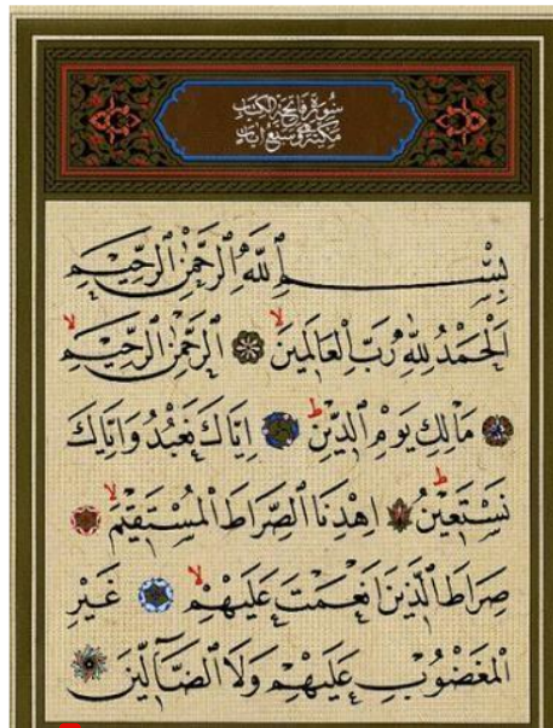 سُورَةُ فَاتِحَةِ الْكِتَابِ
مَكِّيَّةٌ وَهِيَ سَبْعُ اٰيَاتٍ
بِسْمِ اللّٰهِ الرَّحْمٰنِ الرَّحِيمِ
اَلْحَمْدُ لِلّٰهِ رَبِّ الْعَالَمِينَ ۙ اَلرَّحْمٰنِ الرَّحِيمِ ۙ
مَالِكِ يَوْمِ الدِّينِ ۜ اِيَّاكَ نَعْبُدُ وَاِيَّاكَ
نَسْتَعِينُ ۜ اِهْدِنَا الصِّرَاطَ الْمُسْتَقِيمَ ۙ
صِرَاطَ الَّذِينَ اَنْعَمْتَ عَلَيْهِمْ ۙ غَيْرِ
الْمَغْضُوبِ عَلَيْهِمْ وَلَا الضَّٓالِّينَ